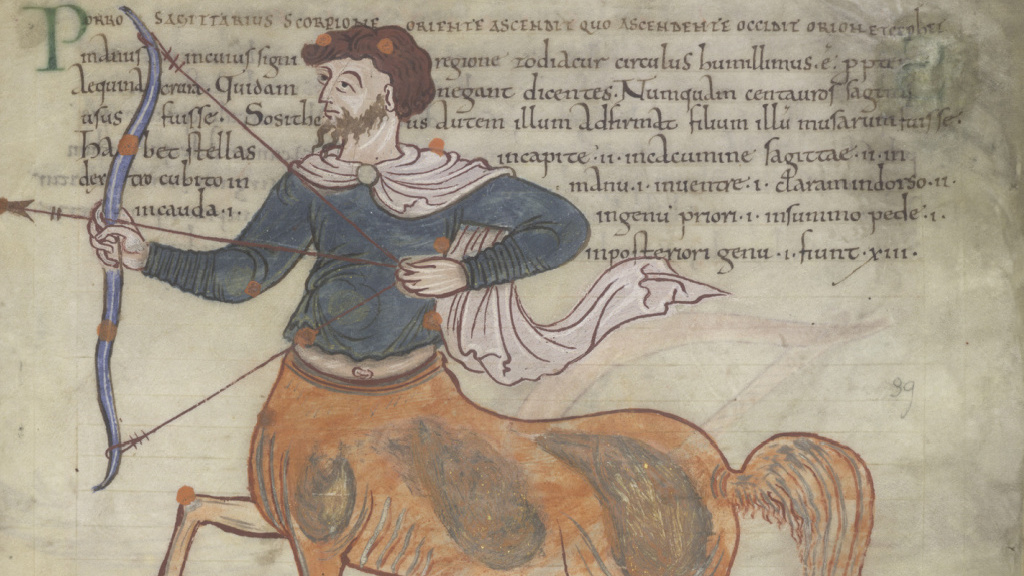 PORRO SAGITTARIUS SCORPIONE ORIENTE ASCENDIT QUO ASCENDENTE OCCIDIT ORION ET
manus signi regione zodiacus circulus humillimus. ē. p
Quidam negant dicentes. Numquam centauros sagittis
usus fuisse. Sosithe us autem illum adfirmat filium illū musarum fuisse.
Habet stellas in capite .ii. in cacumine sagittae .ii. in
dextro cubito .i. in manu .i. in ventre .i. claram in dorso .ii.
in cauda .i. in genu priori .i. in summo pede .i.
in posteriori genu .i. fiunt .xiii.
89